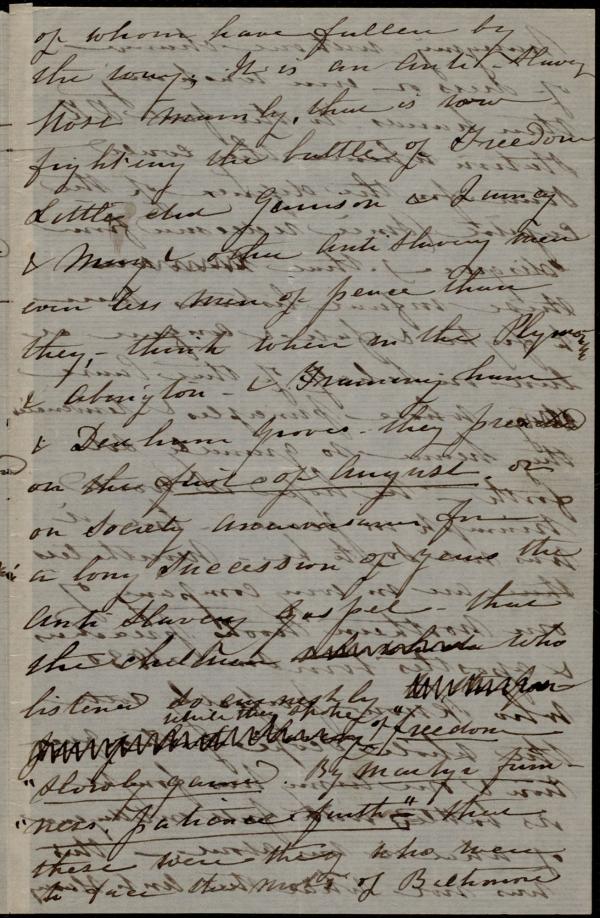 of whom have fallen by
the way. It is an Anti-Slavery
Host mainly, that is now
fighting the battle of Freedom
Little did Garrison & Quincy
& many other anti slavery men
even less men of peace than
they, - think when in the Plymouth
& Abington - & Framingham
& Dedham groves - they preached
on the first of August, or
on Society anniversaries for
a long succession of years the
Anti Slavery Gospel - that
the children who
listened so earnestly
while they spoke of "freedom
"slowly gained. By martyr firm-
"ness, patience, faith" - that
these were they who were
to face the mobs of Baltimore